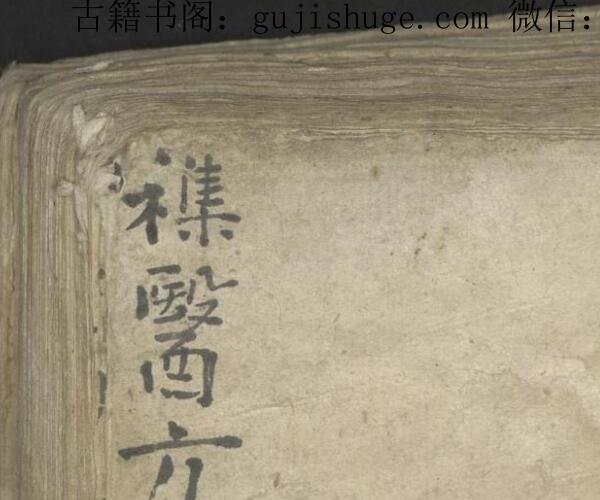 古籍书阁：gujishuge.com 微信：
襍醫方